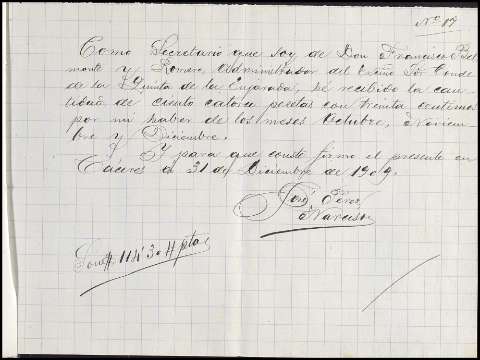 Nº 17
Como Secretario que soy de Don Francisco Bel-
monte y Romero Administrador del Exmo Sor Conde
de la Quinta de la Enjarada, he recibido la can-
tidad de ciento catorce pesetas con treinta centimos
por mi haber de los meses Octubre, Noviem-
bre y Diciembre.
Y para que conste firmo el presente en
Cáceres a 31 de Diciembre de 1909.
José Perez
Narciso
Son # 114'30 # ptas